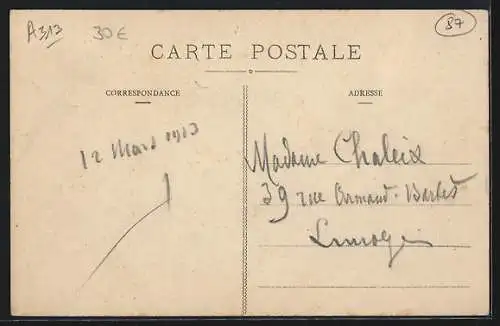 A313
30€
87
CARTE POSTALE
CORRESPONDANCE
ADRESSE
12 Mars 1913
Madame Chaleix
39 rue Armand-Barbès
Limoges